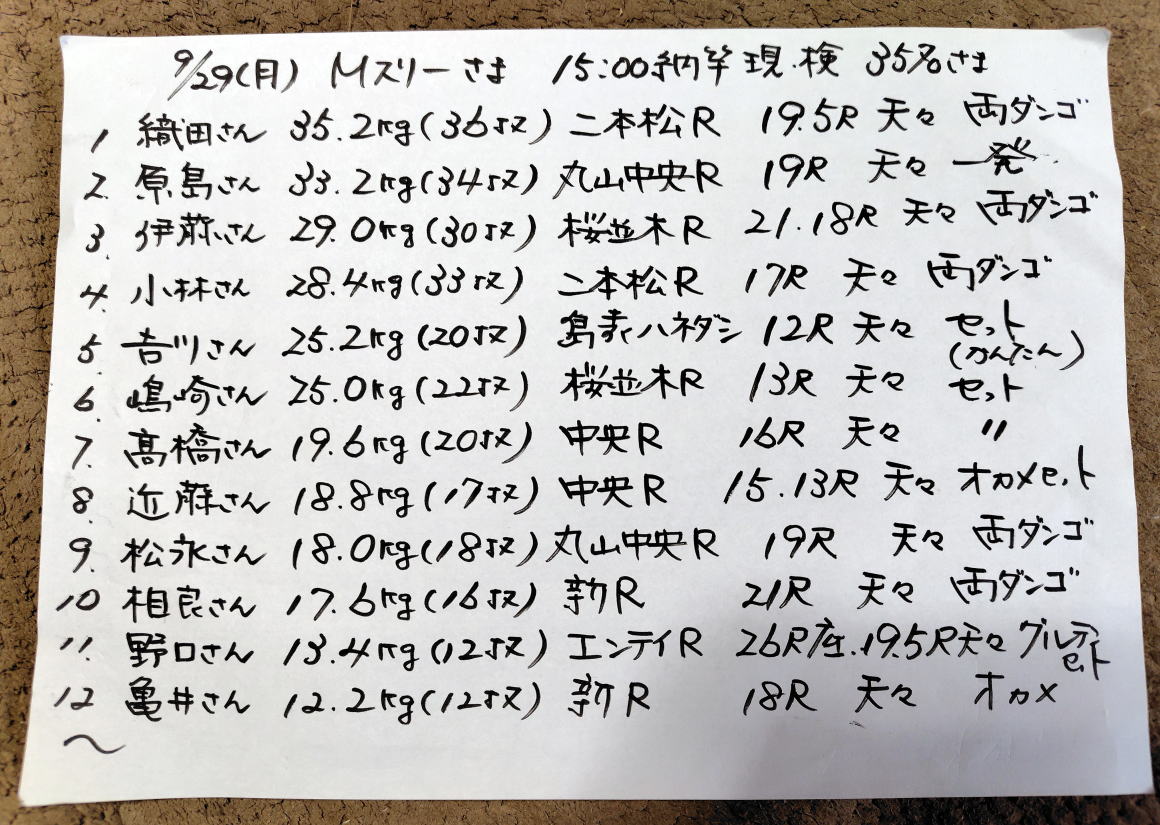 9/29(月) Mスリーさま 15:00納竿 現検 35名さま
1 織田さん 35.2kg(36枚) 二本松R 19.5R 天々 両ダンゴ
2. 原島さん 33.2kg(34枚) 丸山中央R 19R 天々 一発
3. 伊藤さん 29.0kg(30枚) 桜並木R 21.18R 天々 両ダンゴ
4. 小林さん 28.4kg(33枚) 二本松R 17R 天々 両ダンゴ
5 吉川さん 25.2kg(20枚) 島赤ハネダシ 12R 天々 セット
(かんたん)
6. 嶋崎さん 25.0kg(22枚) 桜並木R 13R 天々 セット
7. 高橋さん 19.6kg(20枚) 中央R 16R 天々 〃
8. 近藤さん 18.8kg(17枚) 中央R 15.13R 天々 オカメセット
9. 松永さん 18.0kg(18枚) 丸山中央R 19R 天々 両ダンゴ
10 相良さん 17.6kg(16枚) 新R 21R 天々 両ダンゴ
11. 野口さん 13.4kg(12枚) エンテイR 26R座.19.5R天々 グルテン
セット
12 亀井さん 12.2kg(12枚) 新R 18R 天々 オカメ
〜